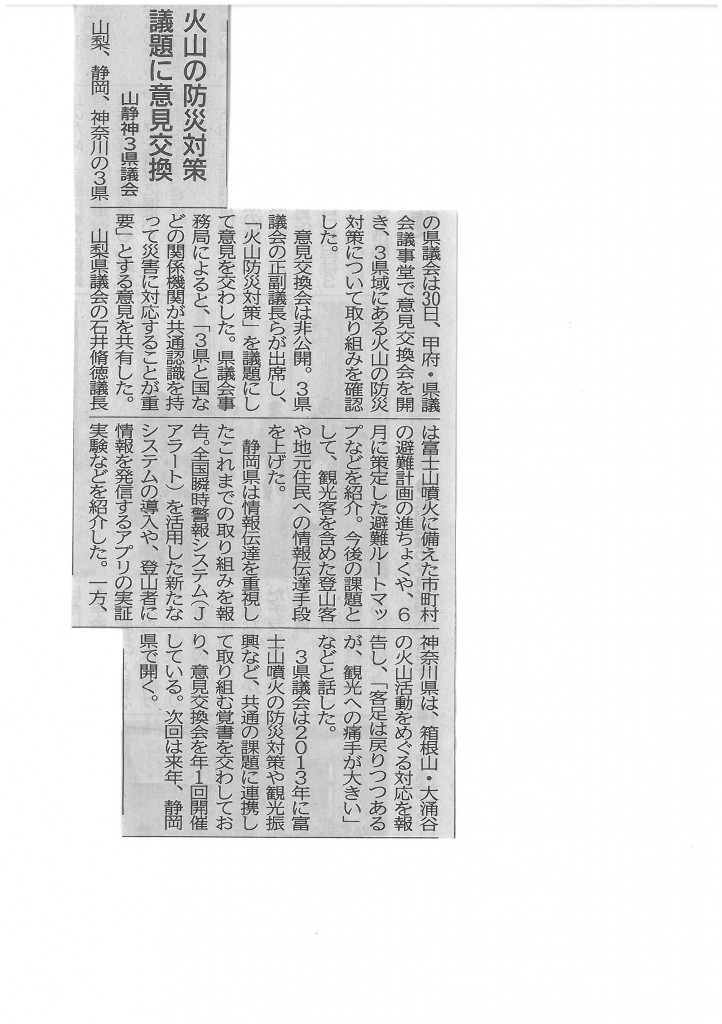 火山の防災対策
議題に意見交換
山静神3県議会
山梨、静岡、神奈川の3県
の県議会は30日、甲府・県議
会議事堂で意見交換会を開
き、3県域にある火山の防災
対策について取り組みを確認
した。
意見交換会は非公開。3県
議会の正副議長らが出席し、
「火山防災対策」を議題にし
て意見を交わした。県議会事
務局によると、「3県と国な
どの関係機関が共通認識を持
って災害に対応することが重
要」とする意見を共有した。
山梨県議会の石井脩徳議長
は富士山噴火に備えた市町村
の避難計画の進ちょくや、6
月に策定した避難ルートマッ
プなどを紹介。今後の課題と
して、観光客を含めた登山客
や地元住民への情報伝達手段
を上げた。
静岡県は情報伝達を重視し
たこれまでの取り組みを報
告。全国瞬時警報システム(J
アラート)を活用した新たな
システムの導入や、登山者に
情報を発信するアプリの実証
実験などを紹介した。一方、
神奈川県は、箱根山・大涌谷
の火山活動をめぐる対応を報
告し、「客足は戻りつつある
が、観光への痛手が大きい」
などと話した。
3県議会は2013年に富
士山噴火の防災対策や観光振
興など、共通の課題に連携し
て取り組む覚書を交わしてお
り、意見交換会を年1回開催
している。次回は来年、静岡
県で開く。